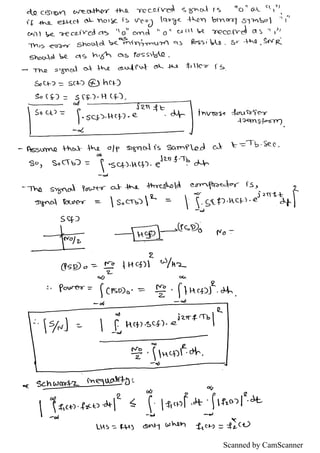 decision weather the received signal is "0" or "1",
if the effect of noise is very large then binary symbol "1"
will be received as "0" and "0" will be received as "1",
This error should be minimum as possible. So the, SNR
should be as high as possible.
- The signal at the output of the filter is
So(t) = s(t) ⊛ h(t)
So(f) = S(f) . H(f).
So(t) = ∫_{-∞}^{∞} S(f).H(f). e^{j2πft} . df    Inverse fourier
transform.
- Assume that the o/p signal is sampled at t=Tb.sec.
So, So(Tb) = ∫_{-∞}^{∞} S(f).H(f). e^{j2πf.Tb} df
- The signal power at the threshold comparator is,
signal power = |So(Tb)|^2 = |∫_{-∞}^{∞} S(f).H(f).e^{j2πft} df|^2
S(f)
No/2    H(f)    (PSD)o    No -
(PSD)o = No/2 |H(f)|^2 W/Hz
∴ Power = ∫_{-∞}^{∞} (PSD)o. = No/2 . ∫_{-∞}^{∞} |H(f)|^2 . df.
∴ [S/N] = |∫_{-∞}^{∞} H(f).S(f). e^{j2πf Tb}|^2 / No/2 . ∫_{-∞}^{∞} |H(f)|^2 . df.
* Schwartz inequality:
|∫_{-∞}^{∞} f1(t). f2(t) dt|^2 ≤ ∫_{-∞}^{∞} |f1(t)|^2 . dt . ∫_{-∞}^{∞} |f2(t)|^2 . dt
LHS = RHS only when f1(t) = f2*(t)
Scanned by CamScanner